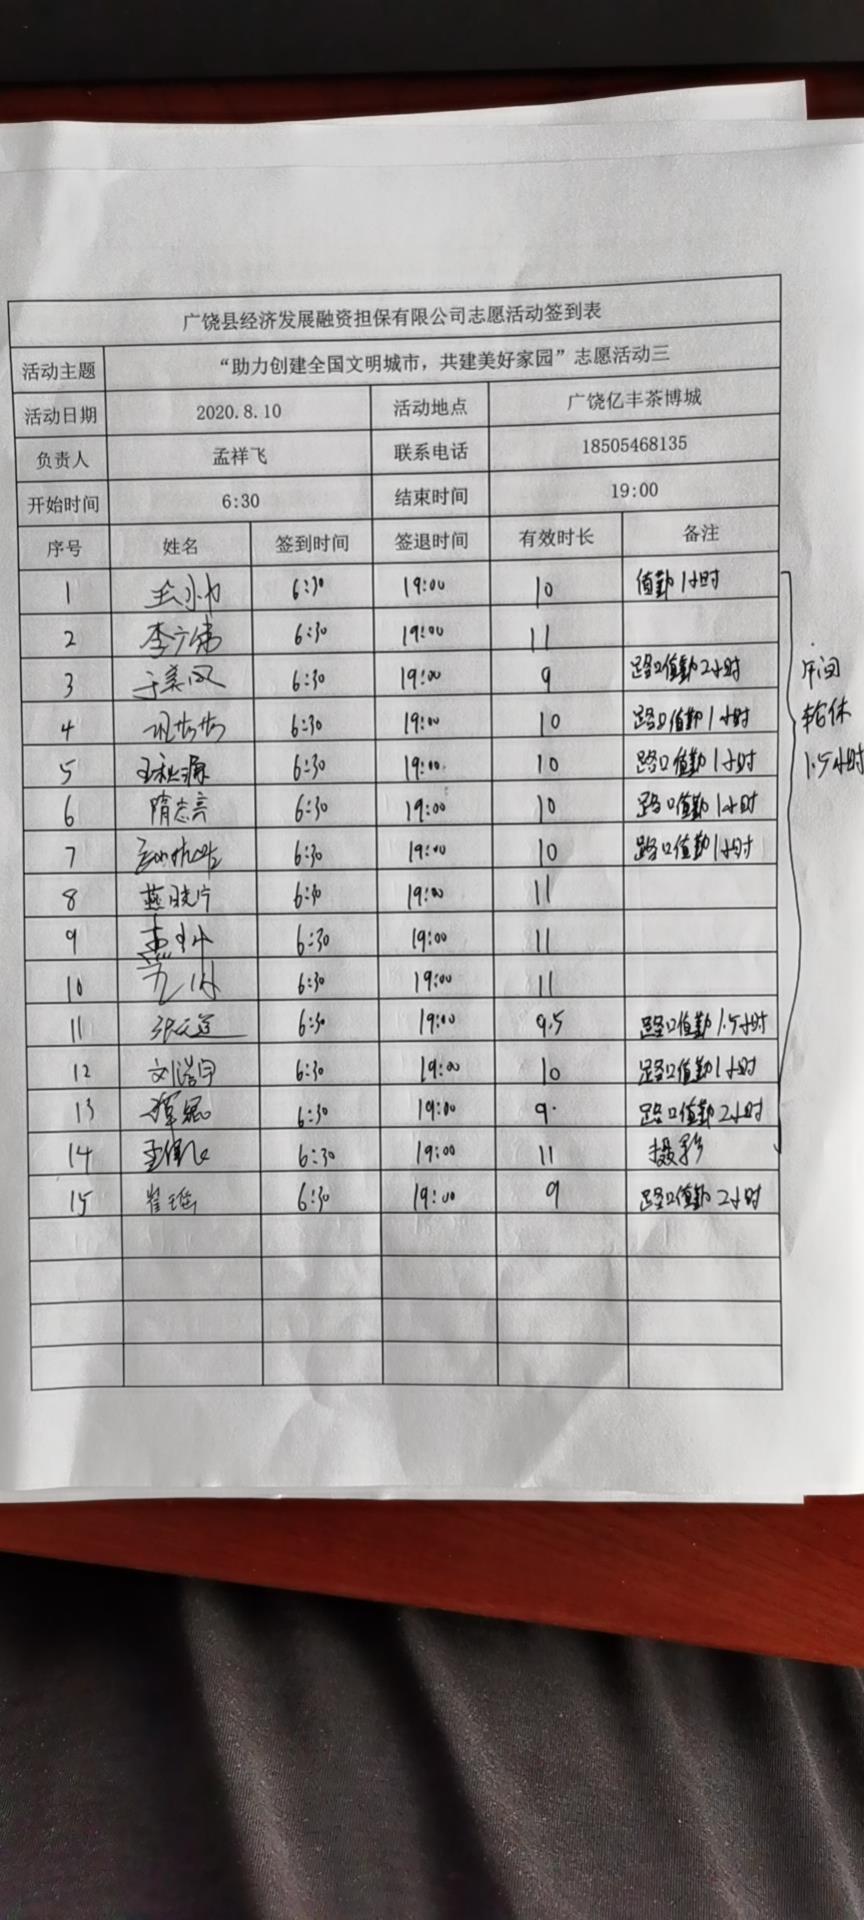 广饶县经济发展融资担保有限公司志愿活动签到表
活动主题 “助力创建全国文明城市，共建美好家园”志愿活动三
活动日期 2020.8.10 活动地点 广饶亿丰茶博城
负责人 孟祥飞 联系电话 18505468135
开始时间 6:30 结束时间 19:00
序号 姓名 签到时间 签退时间 有效时长 备注
1 6:30 19:00 10 值勤1小时
2 李广伟 6:30 19:00 11
3 于美凤 6:30 19:00 9 路口值勤2小时
4 6:30 19:00 10 路口值勤1小时
5 6:30 19:00 10 路口值勤1小时
6 隋志亮 6:30 19:00 10 路口值勤1小时
7 6:30 19:00 10 路口值勤1小时
8 燕晓宁 6:30 19:00 11
9 6:30 19:00 11
10 6:30 19:00 11
11 6:30 19:00 9.5 路口值勤1.5小时
12 刘浩宇 6:30 19:00 10 路口值勤1小时
13 6:30 19:00 9 路口值勤2小时
14 6:30 19:00 11 摄影
15 崔瑶 6:30 19:00 9 路口值勤2小时
午间
轮休
1.5小时